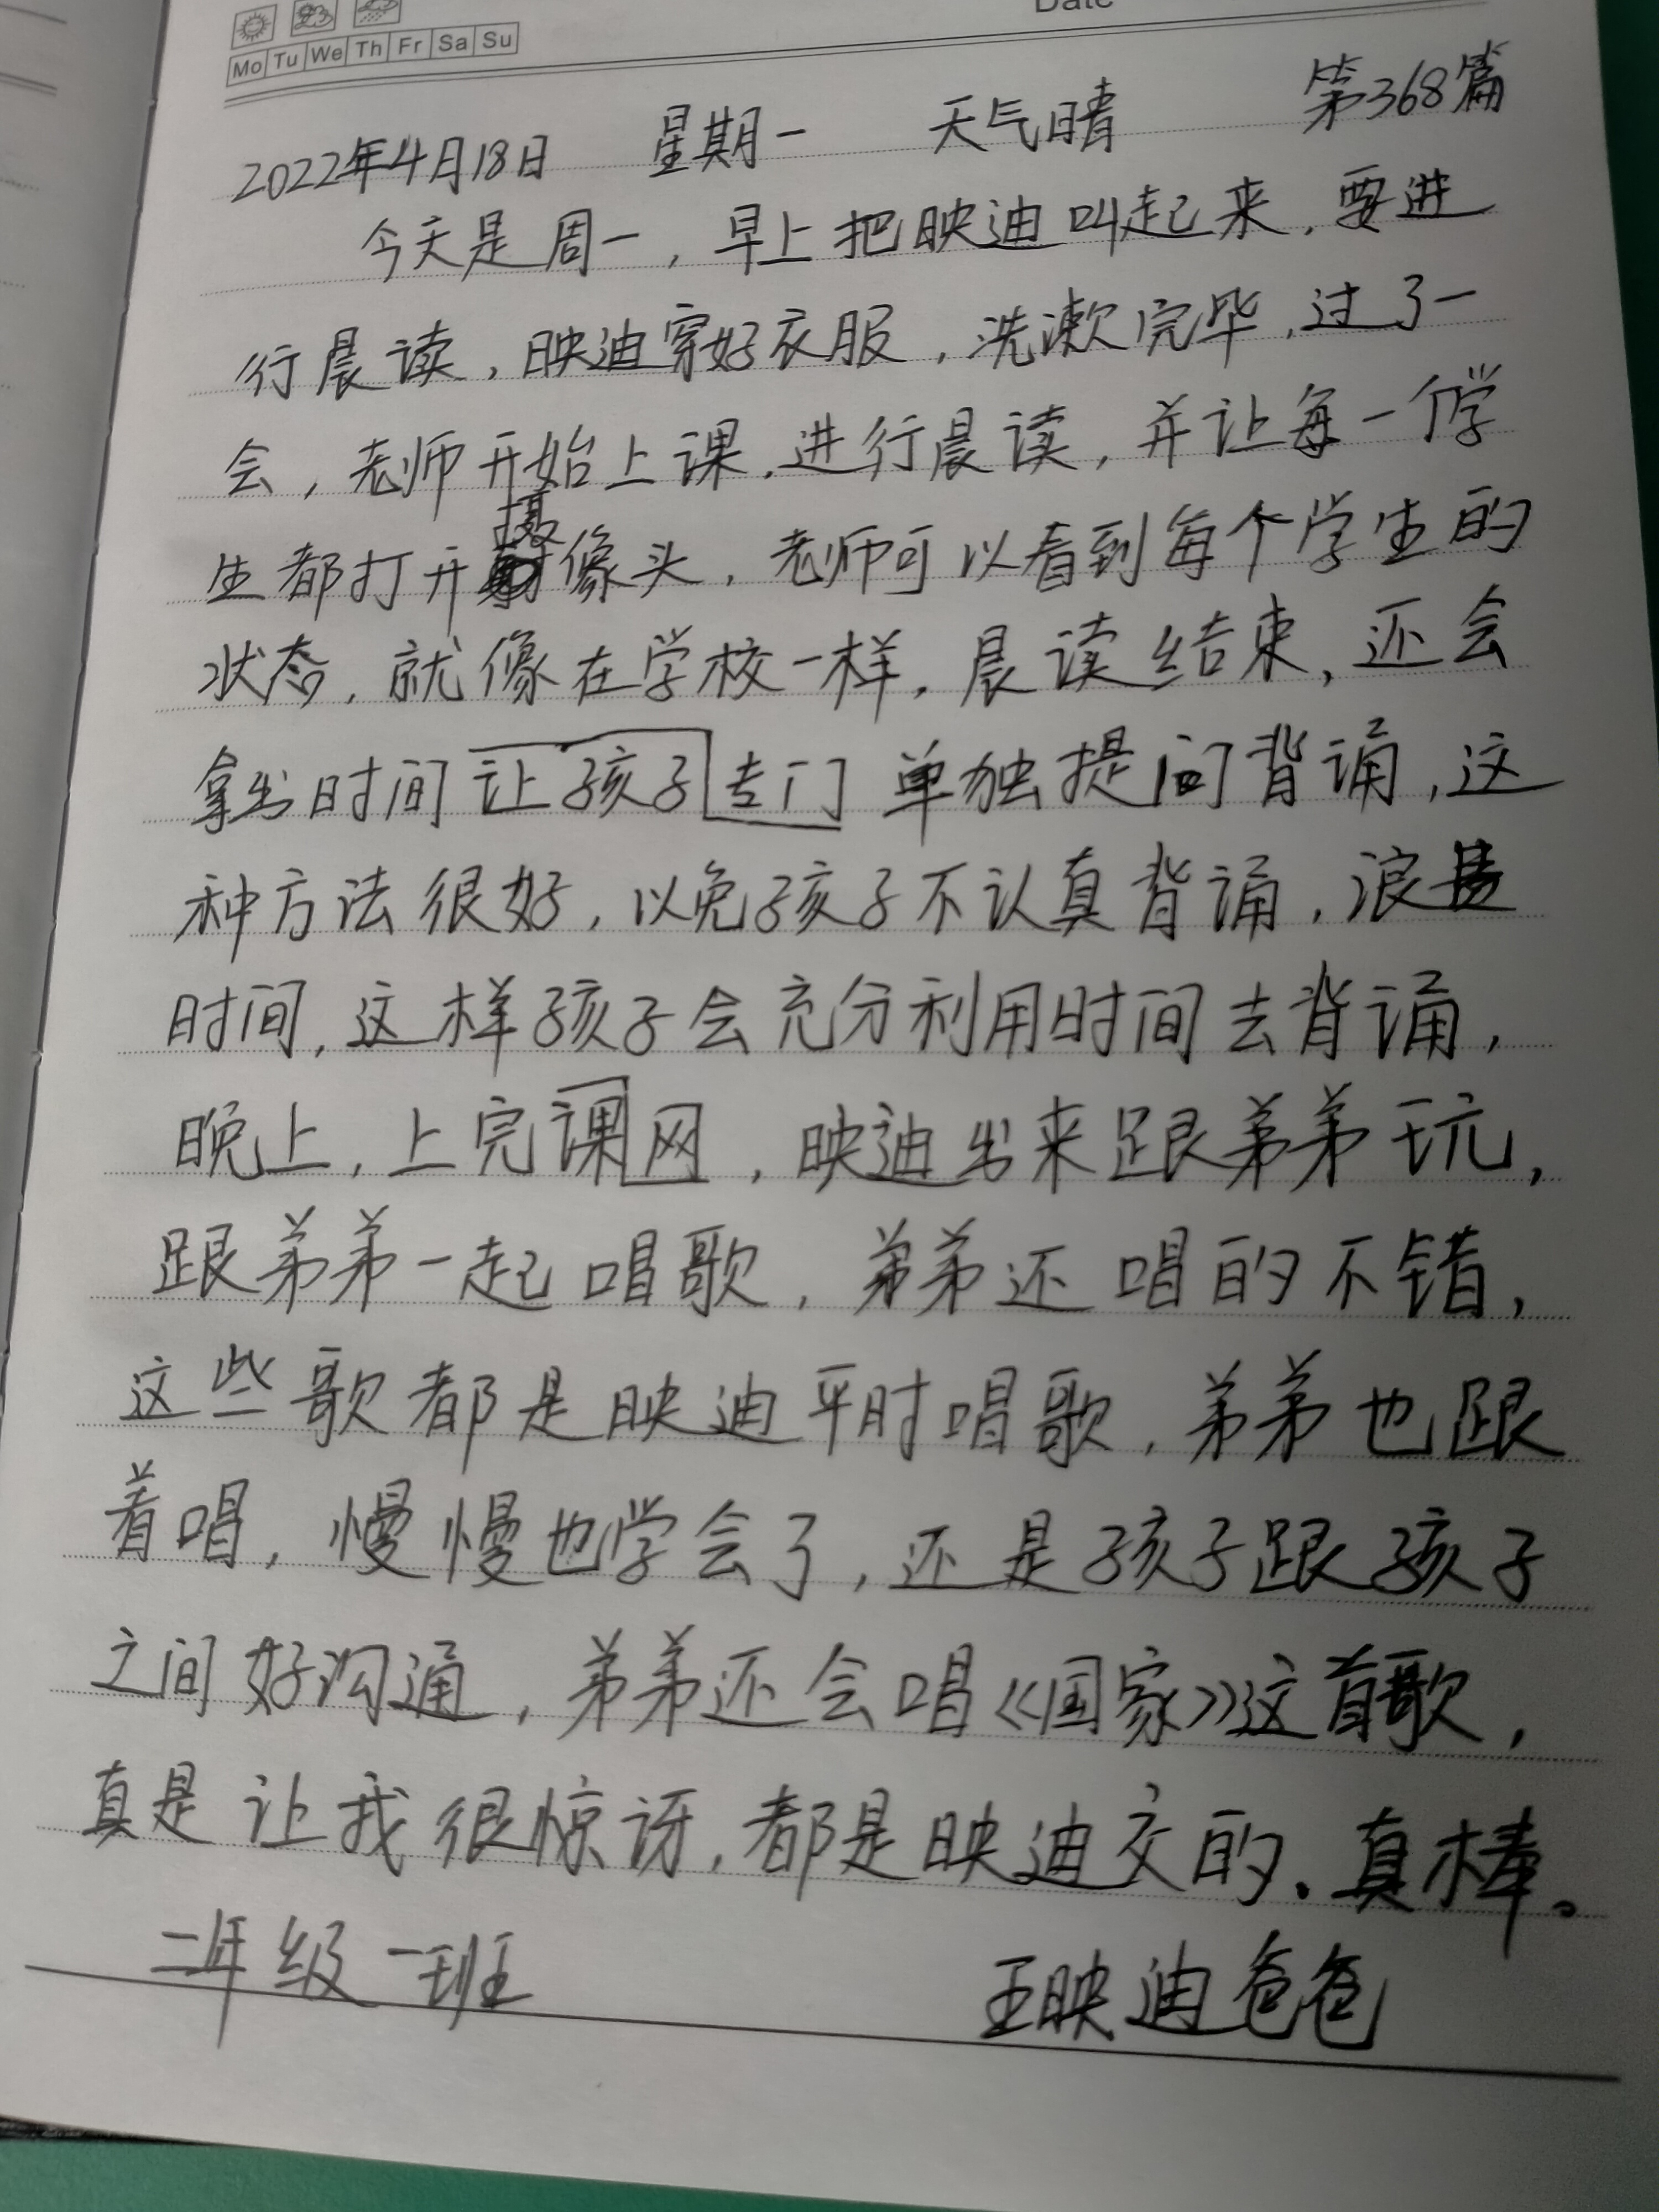 Date
Mo Tu We Th Fr Sa Su
2022年4月18日 星期一 天气晴 第368篇
今天是周一，早上把映迪叫起来，要进
行晨读，映迪穿好衣服，洗漱完毕，过了一
会，老师开始上课，进行晨读，并让每一个学
生都打开摄像头，老师可以看到每个学生的
状态，就像在学校一样，晨读结束，还会
拿出时间让孩子专门单独提问背诵，这
种方法很好，以免孩子不认真背诵，浪费
时间，这样孩子会充分利用时间去背诵，
晚上，上完课网，映迪出来跟弟弟玩，
跟弟弟一起唱歌，弟弟还唱的不错，
这些歌都是映迪平时唱歌，弟弟也跟
着唱，慢慢也学会了，还是孩子跟孩子
之间好沟通，弟弟还会唱《国家》这首歌，
真是让我很惊讶，都是映迪交的，真棒。
二年级一班 王映迪爸爸